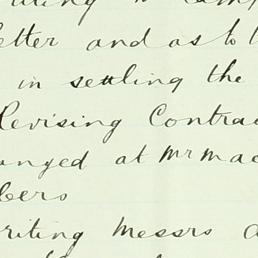 etter and as to
in settling the
Revising Contrac
anged at Mr Mac
bers
riting Messrs